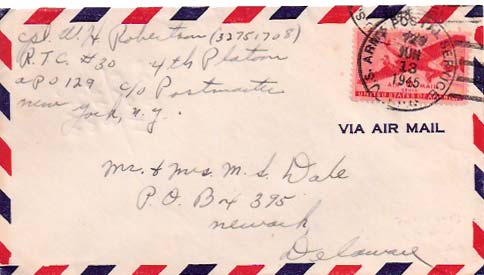 Cpl. W. H. Robertson (32751708)
R.T.C. #30 4th Platoon
APO 129 c/o Postmaster
New York, N.Y.
U.S. ARMY POSTAL SERVICE
JUN
13
1945
AIR MAIL
UNITED STATES OF AMERICA
VIA AIR MAIL
Mr. & Mrs. M. S. Dale
P.O. Box 395
Newark
Delaware